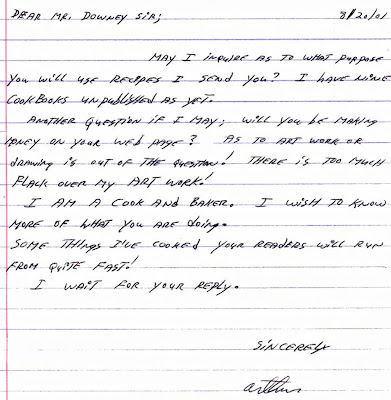 DEAR MR. DOWNEY SIR; 8/20/01
MAY I INQUIRE AS TO WHAT PURPOSE
YOU WILL USE RECIPES I SEND YOU? I HAVE NINE
COOKBOOKS UNPUBLISHED AS YET.
ANOTHER QUESTION IF I MAY; WILL YOU BE MAKING
MONEY ON YOUR WEB PAGE? AS TO ART WORK OR
DRAWING IS OUT OF THE QUESTION! THERE IS TOO MUCH
FLACK OVER MY ART WORK!
I AM A COOK AND BAKER. I WISH TO KNOW
MORE OF WHAT YOU ARE DOING.
SOME THINGS I'VE COOKED YOUR READERS WILL RUN
FROM QUITE FAST!
I WAIT FOR YOUR REPLY.
SINCERELY
Arthur